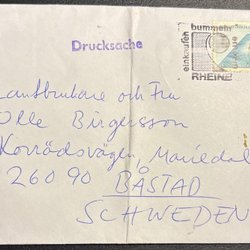 Drucksache
einkaufen
bummeln
RHEINE
Lantbrukare och Fru
Olle Birgersson
Konrádsvägen, Mariedal
260 90 BÅSTAD
SCHWEDEN